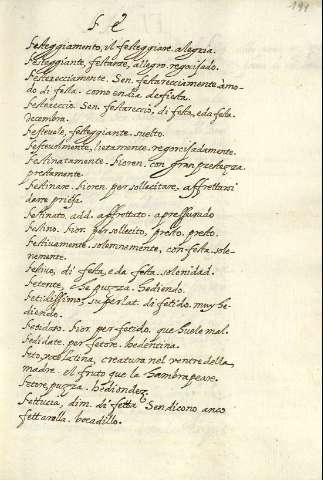 191
F E
Festeggiamento, il festeggiare. alegria.
Festeggiante, festante, allegro. regocijado.
Festerecciamente. Sen. festarecciamente à mo-
do di festa. como en dia de fiesta.
Festereccio. Sen. festareccio, di festa, e da festa.
Festevole, festeggiante. suelto.
Festevolmente, lietamente. regocijadamente.
Festinatamente. fioren. con gran prestezza
prestamente.
Festinare. fioren. per sollecitare. affrettarsi
darse priesa.
Festinato, add. affrettato. apressurado
Festino. fior. per sollecito, presto. presto.
Festivamente. solemnemente, con festa. sole-
nemente.
Festivo, di festa, e da festa. solenidad.
Fetente, che puzza. hediendo.
Fetidissimo, superlat. di fetido. muy he-
diendo.
Fetidoso. fior. per fetido. que huele mal.
Fetidate. per fetore. hedentina.
Feto, voce latina, creatura nel ventre della
madre. el fruto que la hembra pare.
Fetore, puzza. hediondez.
Fettuccia, dim. di fetta Sen dicono anco
fettarella. bocadillo.